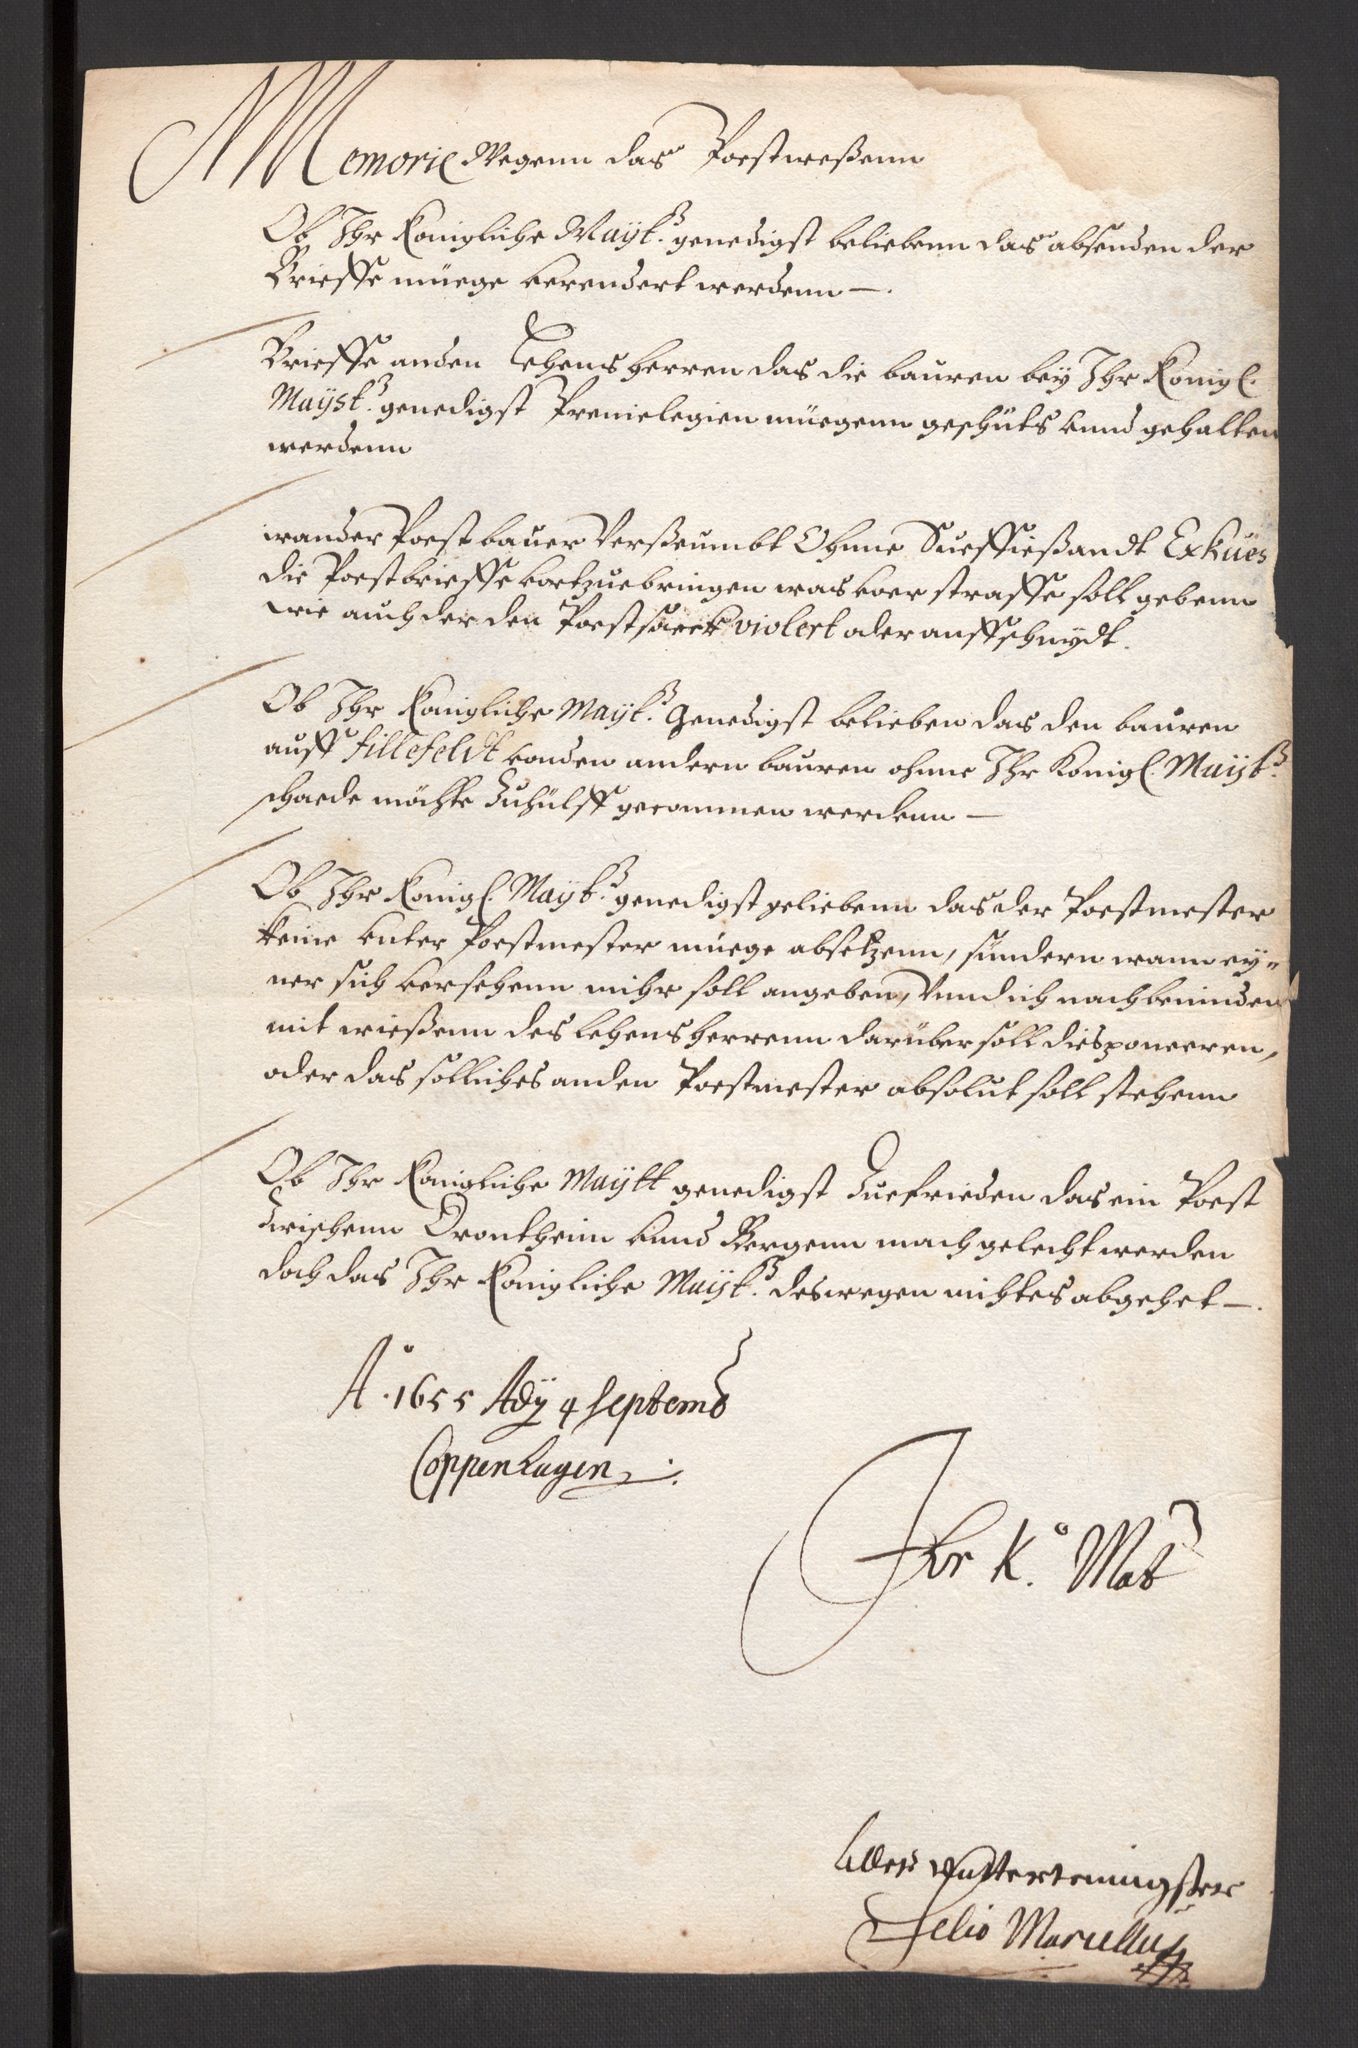 Memorie Wegenn das Poestweßenn
Ob Ihr Königliche Mayt. genedigst beliebenn das absenden der
Brieffe müege verendert werdenn —.
Brieffe anden Lehens herren das die bauren bey Ihr Königl.
Mayst. genedigst Previelegien müegenn geschüts vnnd gehalten
werdenn
wander Poest bauer Verßeumbt Ohnne Sueffießandt Exkües
die Poestbrieffe vortzuebringen was voer straffe soll gebenn
wie auch der den Poestsaeck violert oder auffschnydt.
Ob Ihr Königliche Mayt. Genedigst belieben das den bauren
auff fillefeldt vonden andern bauren ohnne Ihr Königl. Mayst.
schaede möchte Zuhülff gecommen werdenn —
Ob Ihr Königl. Mayt. genedigst geliebenn das der Poestmester
keine vnter Poestmester müege absetzenn, sündern wann ey-
ner sich versehenn mihr soll angeben, Vnnd ich nach beninden
mit wießenn des lehens herrenn darüber soll diesponeeren,
oder das solliches anden Poestmester absolut soll stehenn
Ob Ihr Königliche Maytt genedigst Zuefrieden das ein Poest
Zwischenn Drontheim vnnd Bergenn mach gelecht werden
doch das Ihr Königliche Mayt. deswegen nichtes abgehet —.
A° 1655 Ady 4 Septemb
Coppenhagen
Ihr K. Mat
Aller Vntterteningster
Selio Marcellus